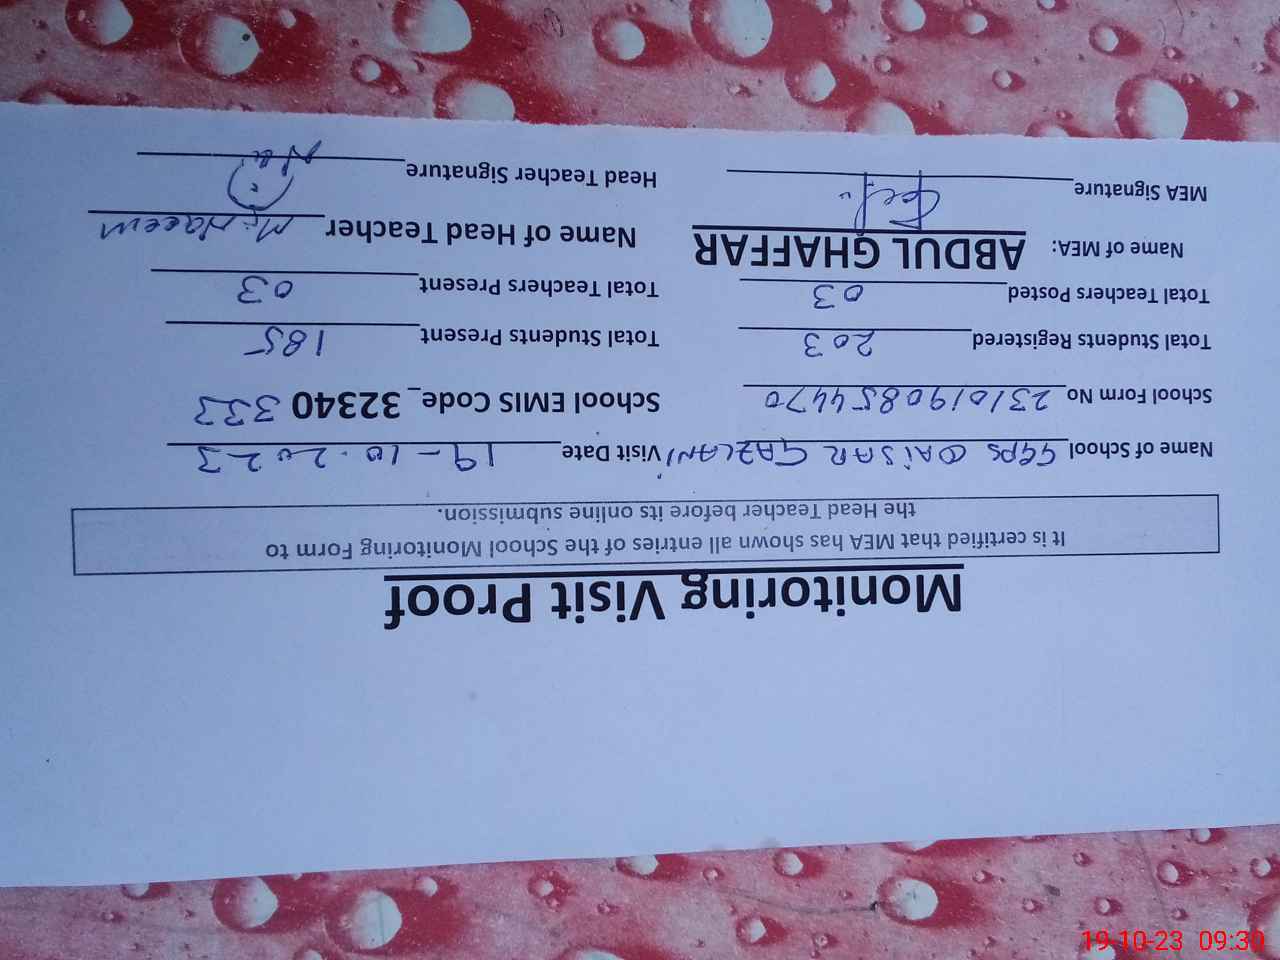 Monitoring Visit Proof
It is certified that MEA has shown all entries of the School Monitoring Form to
the Head Teacher before its online submission.
Name of School GGPS QAISAR GAZLANI Visit Date 19-10-2023
School Form No 2310190854470 School EMIS Code_ 32340 333
Total Students Registered 203 Total Students Present 185
Total Teachers Posted 03 Total Teachers Present 03
Name of MEA: ABDUL GHAFFAR Name of Head Teacher M. Naeem
MEA Signature Head Teacher Signature
19-10-23 09:30